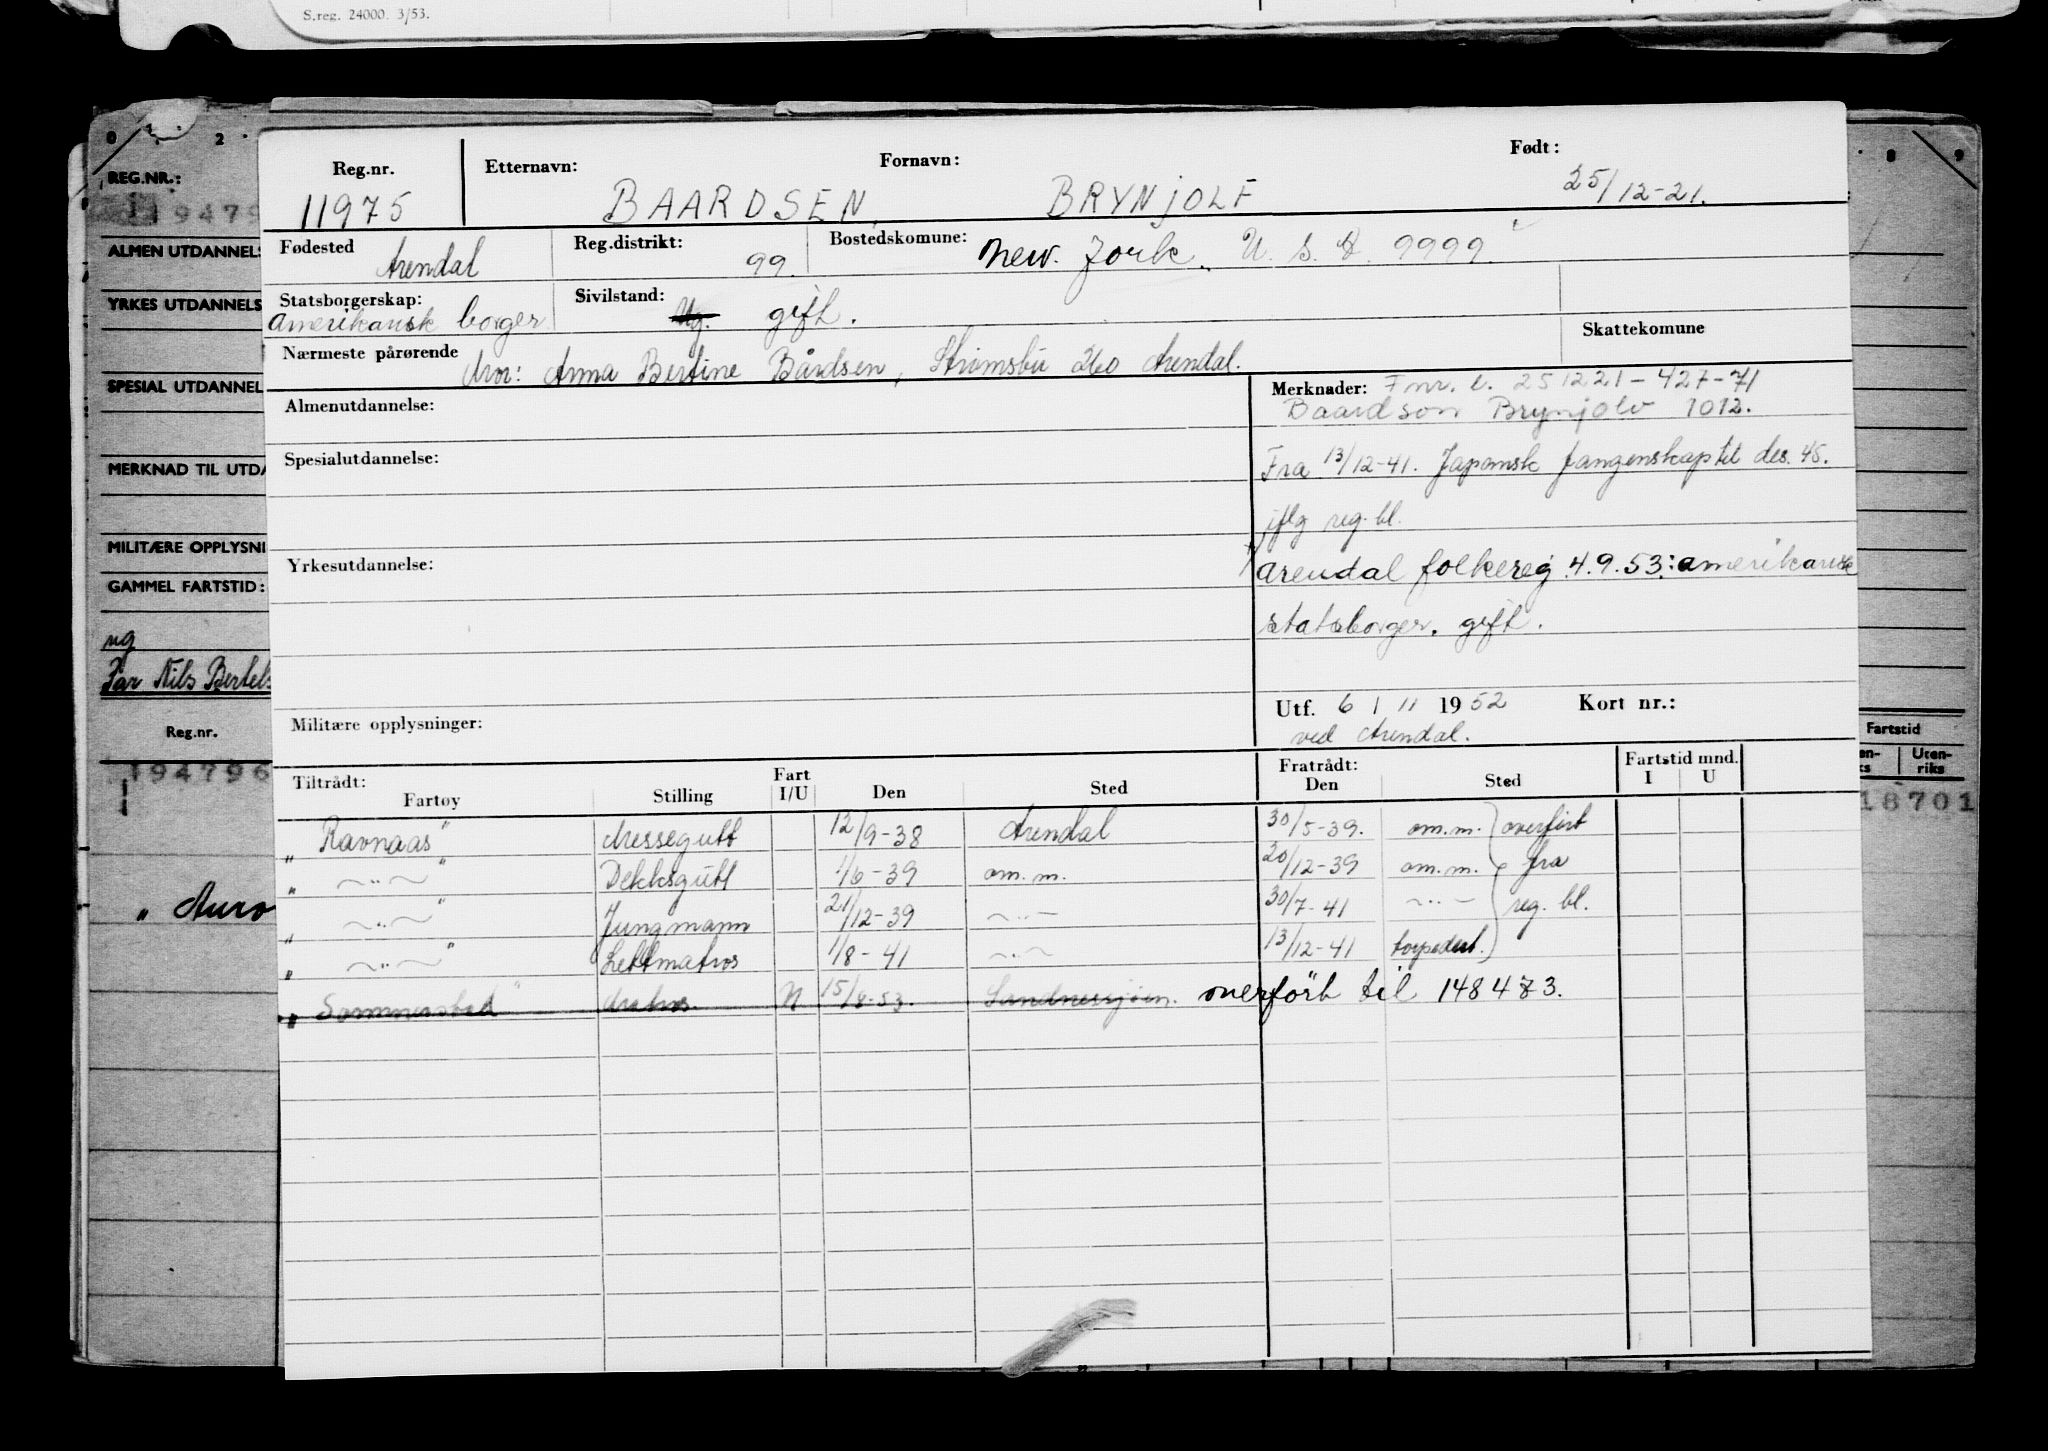 S.reg. 24000. 3/53.
0 1 . 2 .
. 8 9
REG.NR.:
19479
ALMEN UTDANNELS
YRKES UTDANNELS
SPECIAL UTDANNEL
MERKNAD TIL UTDA
MILITÆRE OPPLYSNI
GAMMEL FARTSTID:
ug
Far Nils Bertels
Reg.nr.
194796
" Auro
Fartstid
Uten-
riks
18701
Reg.nr. Etternavn: Fornavn: Født:
11975 BAARDSEN, BRYNJOLF 25/12-21.
Fødested Arendal Reg.distrikt: 99. Bostedskomune: New. Jork. U. S. A. 9999.
Statsborgerskap: Amerikansk borger Sivilstand: Ug. gift.
Skattekomune
Nærmeste pårørende Mor: Anna Bertine Bårdsen, Strømsbu 260 Arendal.
Almenutdannelse:
Spesialutdannelse:
Yrkesutdannelse:
Militære opplysninger:
Merknader: Fnr. e. 251221-427-71
Baardson Brynjolv 1012.
Fra 13/12-41. Japansk fangenskap til des. 45.
iflg reg. bl.
Arendal folkereg. 4.9.53: amerikansk
statsborger. gift.
Utf. 6 / 11 1952 Kort nr.:
ved Arendal.
Tiltrådt: Fratrådt: Fartstid mnd.
Fartøy Stilling Fart I/U Den Sted Den Sted I U
" Ravnaas " Messegutt 12/9-38 Arendal 30/5-39. om.m. overført
" —"— " Dekksgutt 1/6-39 om. m. 20/12-39 om.m. fra
" —"— " Jungmann 21/12-39 —"— 30/7-41 —"— reg. bl.
" —"— " Lettmatros 1/8-41 —"— 13/12-41 torpedert.
" Sommerstad " Matros N 15/8-53. Sandnessjøen. overført til 148473.